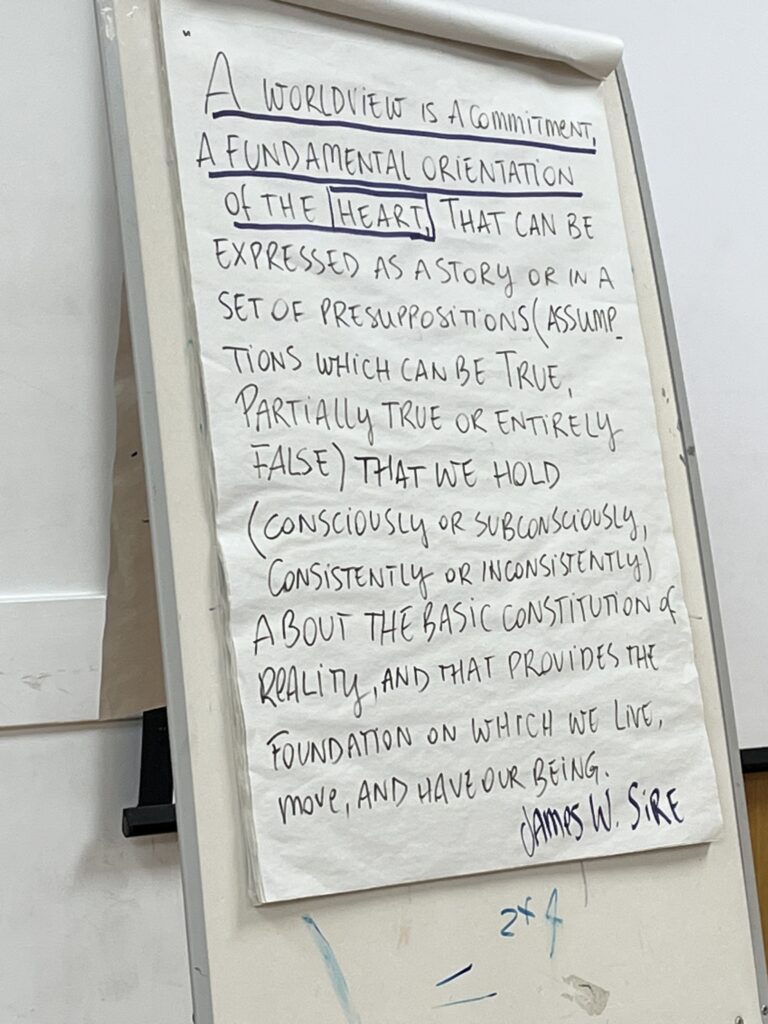 A WORLDVIEW IS A COMMITMENT,
A FUNDAMENTAL ORIENTATION
OF THE HEART, THAT CAN BE
EXPRESSED AS A STORY OR IN A
SET OF PRESUPPOSITIONS (ASSUMP-
TIONS WHICH CAN BE TRUE,
PARTIALLY TRUE OR ENTIRELY
FALSE) THAT WE HOLD
(CONSCIOUSLY OR SUBCONSCIOUSLY,
CONSISTENTLY OR INCONSISTENTLY)
ABOUT THE BASIC CONSTITUTION OF
REALITY, AND THAT PROVIDES THE
FOUNDATION ON WHICH WE LIVE,
MOVE, AND HAVE OUR BEING.
JAMES W. SIRE